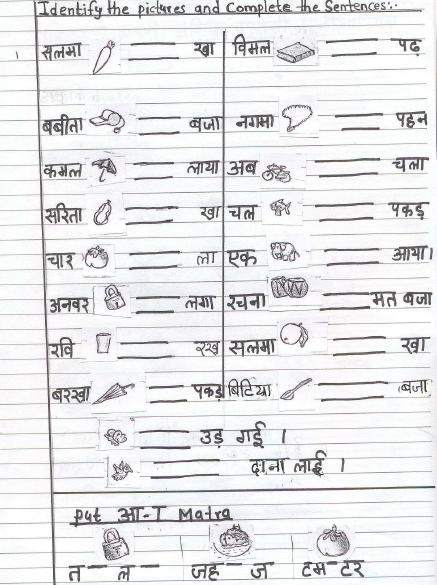 Identify the pictures and Complete the Sentences:.
सलमा ____ खा विमल ____ पढ़
बबीता ____ बजा नगमा ____ पहन
कमल ____ लाया अब ____ चला
सरिता ____ खा चल ____ पकड़
चार ____ ला एक ____ आया।
अनवर ____ लगा रचना ____ मत बजा
रवि ____ रख सलमा ____ खा
बरखा ____ पकड़ बिटिया ____ बजा
____ उड़ गई ।
____ दाना लाई ।
Put आ-ा Matra
त _ ल _ जह _ ज टम _ टर